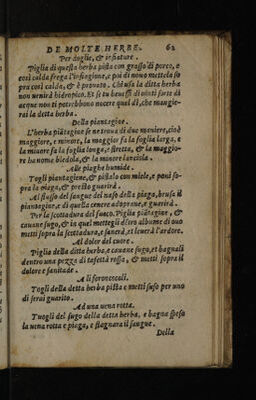 DE MOLTE HERBE. 62
Per doglie, & infiature.
Piglia di questa herba pista con grasso di porco, e
cosi calda frega l'infiagione, e poi di nouo mettela so
pra cosi calda, & è prouato. Chi usa la ditta herba
non uenirà hidropico. Et se tu beuessi di uinti sorte di
acque non ti potrebbono nocere quel dì, che mangie-
rai la detta herba.
Della piantagine.
L'herba piātagine se ne troua di due maniere, cioè
maggiore, e minore, la maggior fa la foglia larga, e
la minore fa la foglia longa, e stretta, & la maggio-
re ha nome bledola, & la minore lanciola.
Alle piaghe humide.
Togli piantagiene, & pistalo con miele, e poni so-
pra la piaga, & presto guarirà.
Al flusso del sangue del naso della piaga, brusa il
piantagine, e di quella cenere adoprane, e guarirà.
Per la scottadura del fuoco. Piglia piātagine, &
cauane sugo, & in quel mettegli dētro albume di ouo
metti sopra la scottadura, e sanerà, et leuerà l'ardore.
Al dolor del cuore.
Piglia della ditta herba, e cauane sugo, et bagnali
dentro una pezza di tafettà rossa, & metti sopra il
dolore e sanitade.
A li feronescoli.
Togli della detta herba pista e metti suso per uno
dì serai guarito.
Ad una uena rotta.
Tuogli del sugo della detta herba, e bagna spesso
la uena rotta e piaga, e stagnara il sangue.
Della